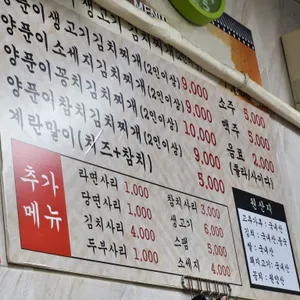 MENU
양푼이생고기김치찌개(2인이상) 9,000
양푼이소세지김치찌개(2인이상) 9,000
양푼이꽁치김치찌개(2인이상) 10,000
양푼이참치김치찌개(2인이상) 9,000
계란말이(치즈+참치) 5,000
소주 5,000
맥주 5,000
음료 2,000
(콜라/사이다)
추가
메뉴
라면사리 1,000
당면사리 1,000
김치사리 4,000
두부사리 1,000
참치사리 3,000
생고기 6,000
스팸 5,000
소세지 4,000
원산지
고추가루 : 국내산
김치 : 국내산
쌀 : 국내산
돼지고기 : 국내산
꽁치 : 원양산